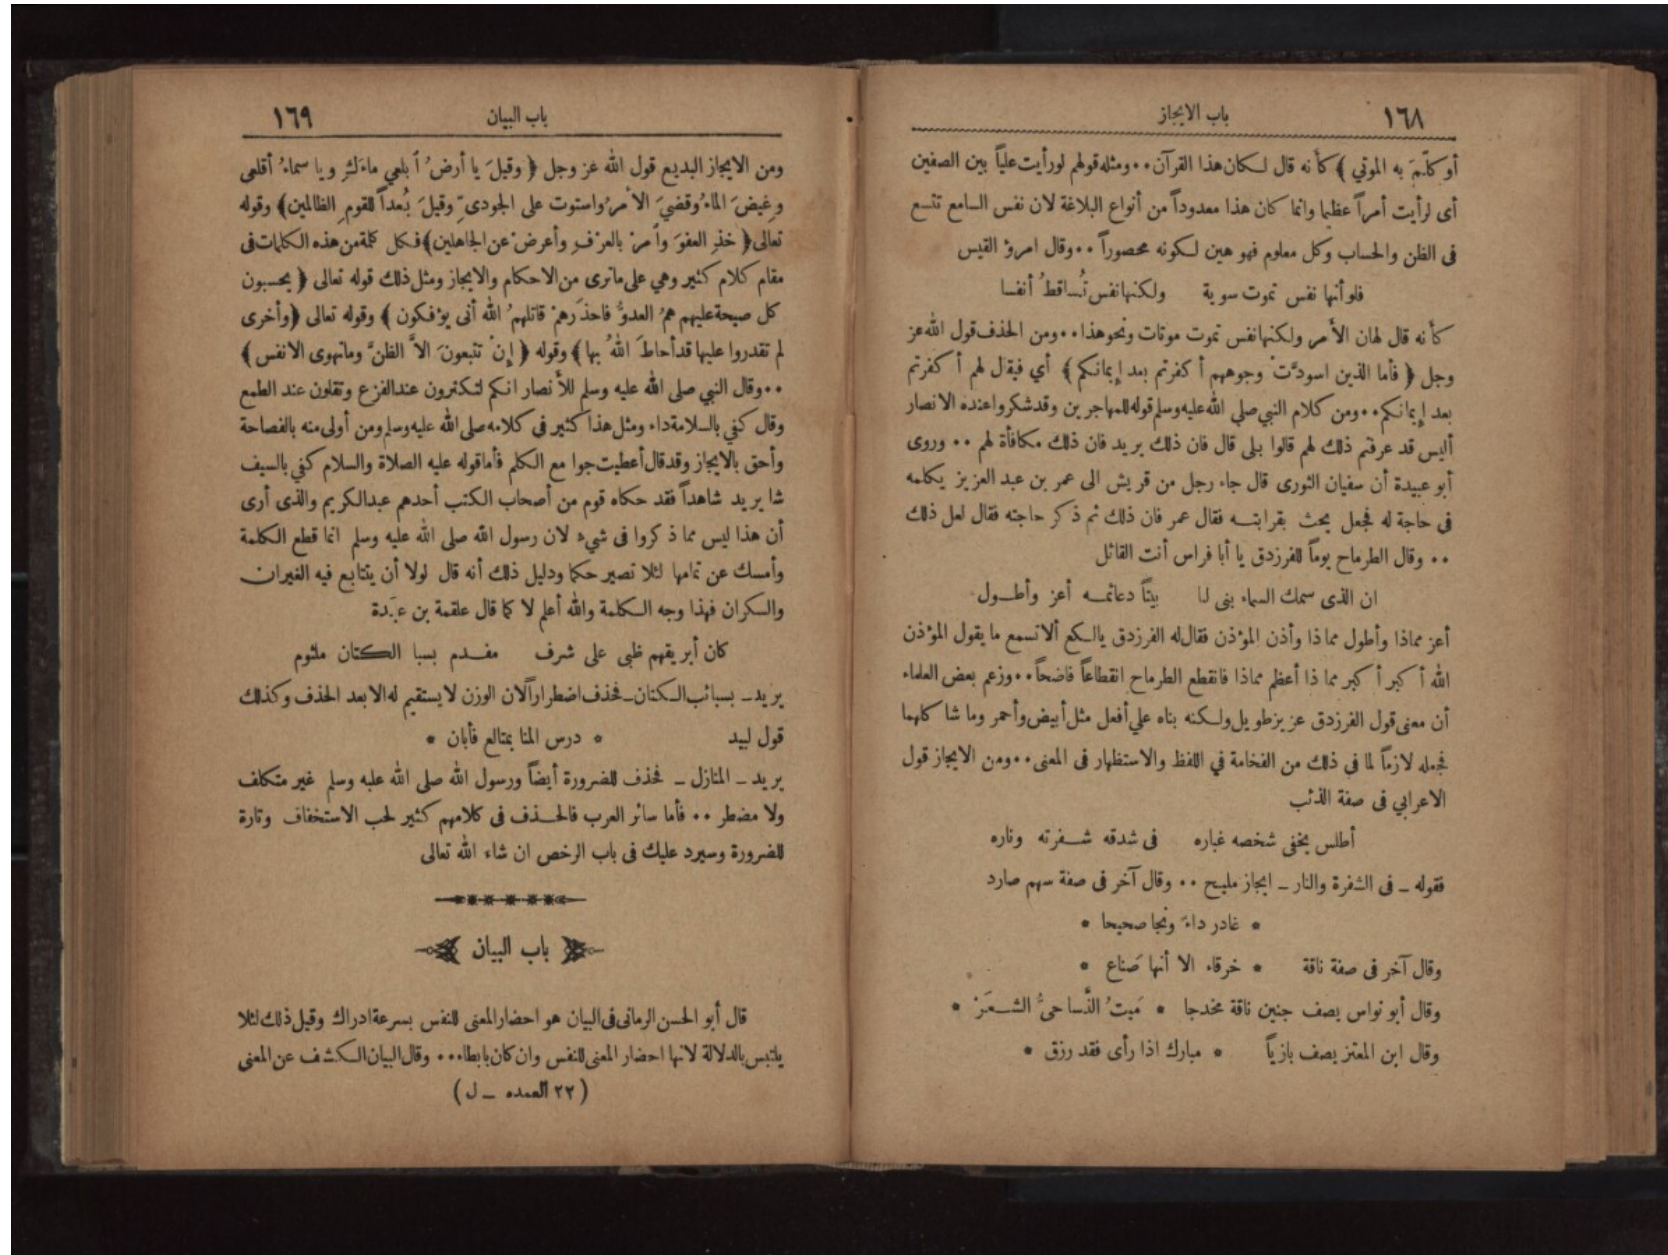 ١٦٨
باب الايجاز
أو كلّمَ به الموتي ﴾ كأنه قال لكان هذا القرآن٠٠ومثله قولهم لو رأيت علياً بين الصفين
أى لرأيت أمراً عظيما وانما كان هذا معدوداً من أنواع البلاغة لان نفس السامع تتسع
فى الظن والحساب وكل معلوم فهو هين لكونه محصوراً ٠٠وقال امرؤ القيس
فلو أنها نفس تموت سوية ولكنها نفس تُساقطُ أنفسا
كأنه قال لهان الأمر ولكنها نفس تموت موتات ونحو هذا٠٠ومن الحذف قول الله عز
وجل ﴿ فأما الذين اسودَّتْ وجوههم أكفرتم بعد إيمانكم ﴾ أي فيقال لهم أكفرتم
بعد إيمانكم٠٠ومن كلام النبي صلى الله عليه وسلم قوله للمهاجرين وقد شكروا عنده الانصار
أليس قد عرفتم ذلك لهم قالوا بلى قال فان ذلك يريد فان ذلك مكافأة لهم ٠٠ وروى
أبو عبيدة أن سفيان الثورى قال جاء رجل من قريش الى عمر بن عبد العزيز يكلمه
فى حاجة له فجعل يحث بقرابته فقال عمر فان ذلك ثم ذكر حاجته فقال لعل ذلك
٠٠ وقال الطرماح يوماً للفرزدق يا أبا فراس أنت القائل
ان الذى سمك السماء بنى لنا بيتاً دعائمه أعز وأطول
أعز مماذا وأطول مماذا وأذن المؤذن فقال له الفرزدق يالكع ألا تسمع ما يقول المؤذن
الله أكبر أكبر مما ذا أعظم مماذا فانقطع الطرماح انقطاعاً فاضحاً٠٠وزعم بعض العلماء
أن معنى قول الفرزدق عزيز طويل ولكنه بناه علي أفعل مثل أبيض وأحمر وما شاكلهما
فجعله لازماً لما فى ذلك من الفخامة في اللفظ والاستظهار فى المعنى٠٠ومن الايجاز قول
الاعرابي فى صفة الذئب
أطلس يخفى شخصه غباره فى شدقه شفرته وناره
فقوله ــ فى الشفرة والنار ــ ايجاز مليح ٠٠ وقال آخر فى صفة سهم صارد
* غادر داءً ونجا صحيحا *
وقال آخر فى صفة ناقة * خرقاء الا أنها صَناع *
وقال أبو نواس يصف جنين ناقة مخدجا * مَيتُ النَّسا حىُّ الشعَرْ *
وقال ابن المعتز يصف بازياً * مبارك اذا رأى فقد رزق *
باب البيان
١٦٩
ومن الايجاز البديع قول الله عز وجل ﴿ وقيلَ يا أرضُ أبلعي ماءَكِ ويا سماءُ أقلعى
وغيضَ الماءُ وقضيَ الأمرُ واستوت على الجودىّ وقيلَ بُعداً للقومِ الظالمين﴾ وقوله
تعالى﴿ خذِ العفوَ وأمرْ بالعرْفِ وأعرضْ عن الجاهلين﴾فكل كلمة من هذه الكلمات فى
مقام كلام كثير وهي على ماترى من الاحكام والايجاز ومثل ذلك قوله تعالى ﴿ يحسبون
كل صيحة عليهم همُ العدوُّ فاحذَرهمْ قاتلهمُ الله أنى يؤفكون ﴾ وقوله تعالى ﴿وأخرى
لم تقدروا عليها قد أحاطَ اللهُ بها﴾ وقوله ﴿ إنْ تتبعونَ الاَّ الظنَّ وماتهوى الانفس ﴾
٠٠وقال النبي صلى الله عليه وسلم للأنصار انكم لتكثرون عند الفزع وتقلون عند الطمع
وقال كفي بالسلامة داء ومثل هذا كثير فى كلامه صلى الله عليه وسلم ومن أولى منه بالفصاحة
وأحق بالايجاز وقد قال أعطيت جوامع الكلم فأما قوله عليه الصلاة والسلام كفي بالسيف
شا يريد شاهداً فقد حكاه قوم من أصحاب الكتب أحدهم عبدالكريم والذى أرى
أن هذا ليس مما ذكروا فى شيء لان رسول الله صلى الله عليه وسلم انما قطع الكلمة
وأمسك عن تمامها لئلا تصير حكما ودليل ذلك أنه قال لولا أن يتتابع فيه الغيران
والسكران فهذا وجه الكلمة والله أعلم لا كما قال علقمة بن عبَدة
كان أبريقهم ظبى على شرف مفدم بسبا الكتان ملثوم
يريد ــ بسبائب الكتان ــ فحذف اضطراراً لان الوزن لا يستقيم له الا بعد الحذف وكذلك
قول لبيد * درس المنا بمتالع فأبان *
يريد ــ المنازل ــ فحذف للضرورة أيضاً ورسول الله صلى الله عليه وسلم غير متكلف
ولا مضطر ٠٠ فأما سائر العرب فالحذف فى كلامهم كثير لحب الاستخفاف وتارة
للضرورة وسيرد عليك فى باب الرخص ان شاء الله تعالى
باب البيان
قال أبو الحسن الرمانى فى البيان هو احضار المعنى للنفس بسرعة ادراك وقيل ذلك لئلا
يلتبس بالدلالة لانها احضار المعنى للنفس وان كان بابطاء٠٠ وقال البيان الكشف عن المعنى
( ٢٢ العمده ــ ل )